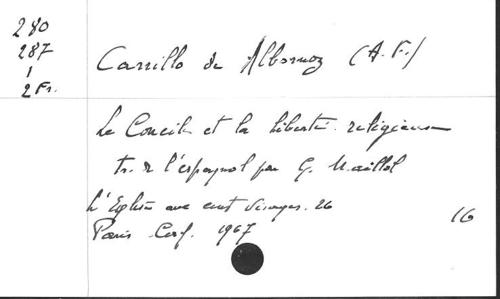 280
287
1
2 Fr.
Carrillo de Albornoz (A. F.)
Le Concile et la liberté religieuse
tr. de l'espagnol par G. Maillol
L'Eglise aux cent visages. 26
Paris Cerf. 1967
16